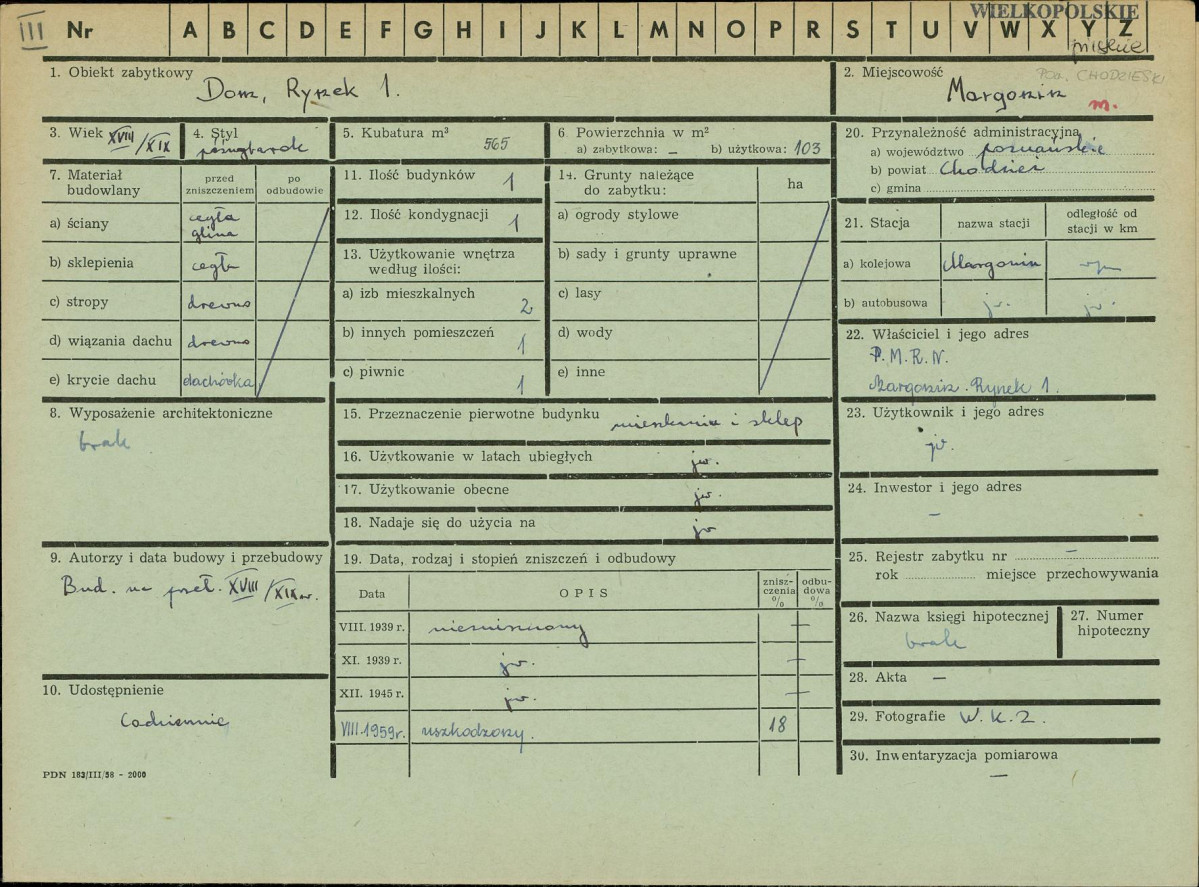 WIELKOPOLSKIE
III Nr A B C D E F G H I J K L M N O P R S T U V W X Y Z
pilskie
1. Obiekt zabytkowy
Dom, Rynek 1.
2. Miejscowość
Pow. CHODZIESKI
Margonin
m.
3. Wiek XVIII/XIX
4. Styl
późnybarok
5. Kubatura m³
565
6 Powierzchnia w m²
a) zabytkowa: – b) użytkowa: 103
20. Przynależność administracyjna
a) województwo poznańskie
b) powiat Chodzież
c) gmina
7. Materiał budowlany
przed zniszczeniem
po odbudowie
a) ściany cegła glina
b) sklepienia cegła
c) stropy drewno
d) wiązania dachu drewno
e) krycie dachu dachówka
11. Ilość budynków 1
12. Ilość kondygnacji 1
13. Użytkowanie wnętrza według ilości:
a) izb mieszkalnych 2
b) innych pomieszczeń 1
c) piwnic 1
14. Grunty należące do zabytku:
ha
a) ogrody stylowe
b) sady i grunty uprawne
c) lasy
d) wody
e) inne
21. Stacja
nazwa stacji
odległość od stacji w km
a) kolejowa Margonin
b) autobusowa jw. jw.
22. Właściciel i jego adres
P.M.R.N.
Margonin. Rynek 1.
23. Użytkownik i jego adres
jw.
24. Inwestor i jego adres
–
8. Wyposażenie architektoniczne
brak
15. Przeznaczenie pierwotne budynku mieszkania i sklep
16. Użytkowanie w latach ubiegłych jw.
17. Użytkowanie obecne jw.
18. Nadaje się do użycia na jw
9. Autorzy i data budowy i przebudowy
Bud. na przeł. XVIII/XIX w.
19. Data, rodzaj i stopień zniszczeń i odbudowy
Data
OPIS
zniszczenia %
odbudowa %
VIII. 1939 r. nienaruszony –
XI. 1939 r. jw. –
XII. 1945 r. jw. –
VIII.1959r. uszkodzony. 18
25. Rejestr zabytku nr –
rok miejsce przechowywania
26. Nazwa księgi hipotecznej
brak
27. Numer hipoteczny
28. Akta –
29. Fotografie W.K.Z.
30. Inwentaryzacja pomiarowa
–
10. Udostępnienie
Codziennie
PDN 183/III/58 - 2000